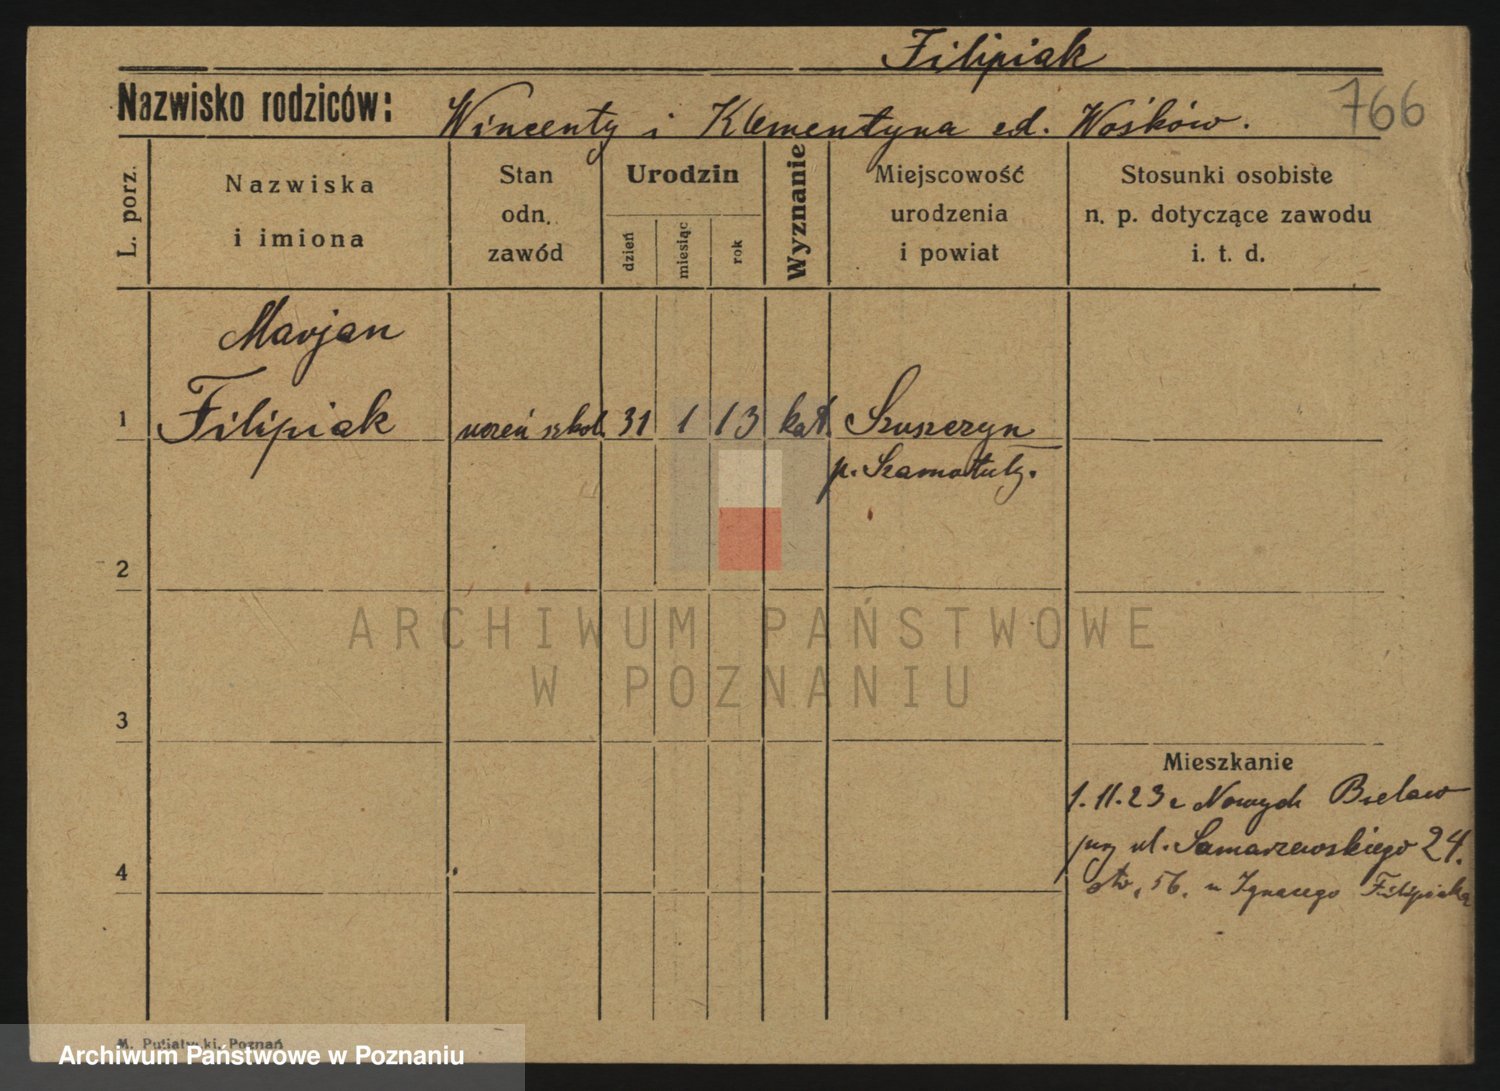 Filipiak
Nazwisko rodziców: Wincenty i Klementyna ed. Wośków.
766
L. porz.
Nazwiska
i imiona
Stan
odn.
zawód
Urodzin
dzień
miesiąc
rok
Wyznanie
Miejscowość
urodzenia
i powiat
Stosunki osobiste
n. p. dotyczące zawodu
i. t. d.
Marjan
1 Filipiak uczeń szkol. 31 1 13 kat. Szuszczyn
p. Szamotuły.
2
3
4
Mieszkanie
1.11.23 z Nowych Bielaw
przy ul. Samarzewskiego 24.
56. u Ignacego Filipiaka
ARCHIWUM PAŃSTWOWE
W POZNANIU
M. Putiatycki, Poznań
Archiwum Państwowe w Poznaniu